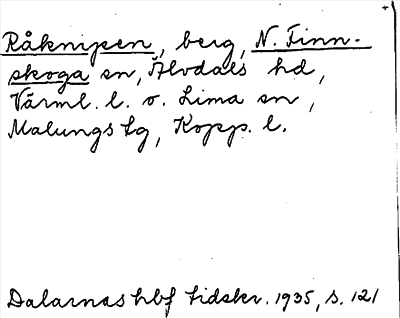 Råknipen, berg, N. Finn-
skoga sn, Älvdals hd,
Värml. l. o. Lima sn,
Malungs tg, Kopp. l.
Dalarnas hbf tidskr. 1935, s. 121